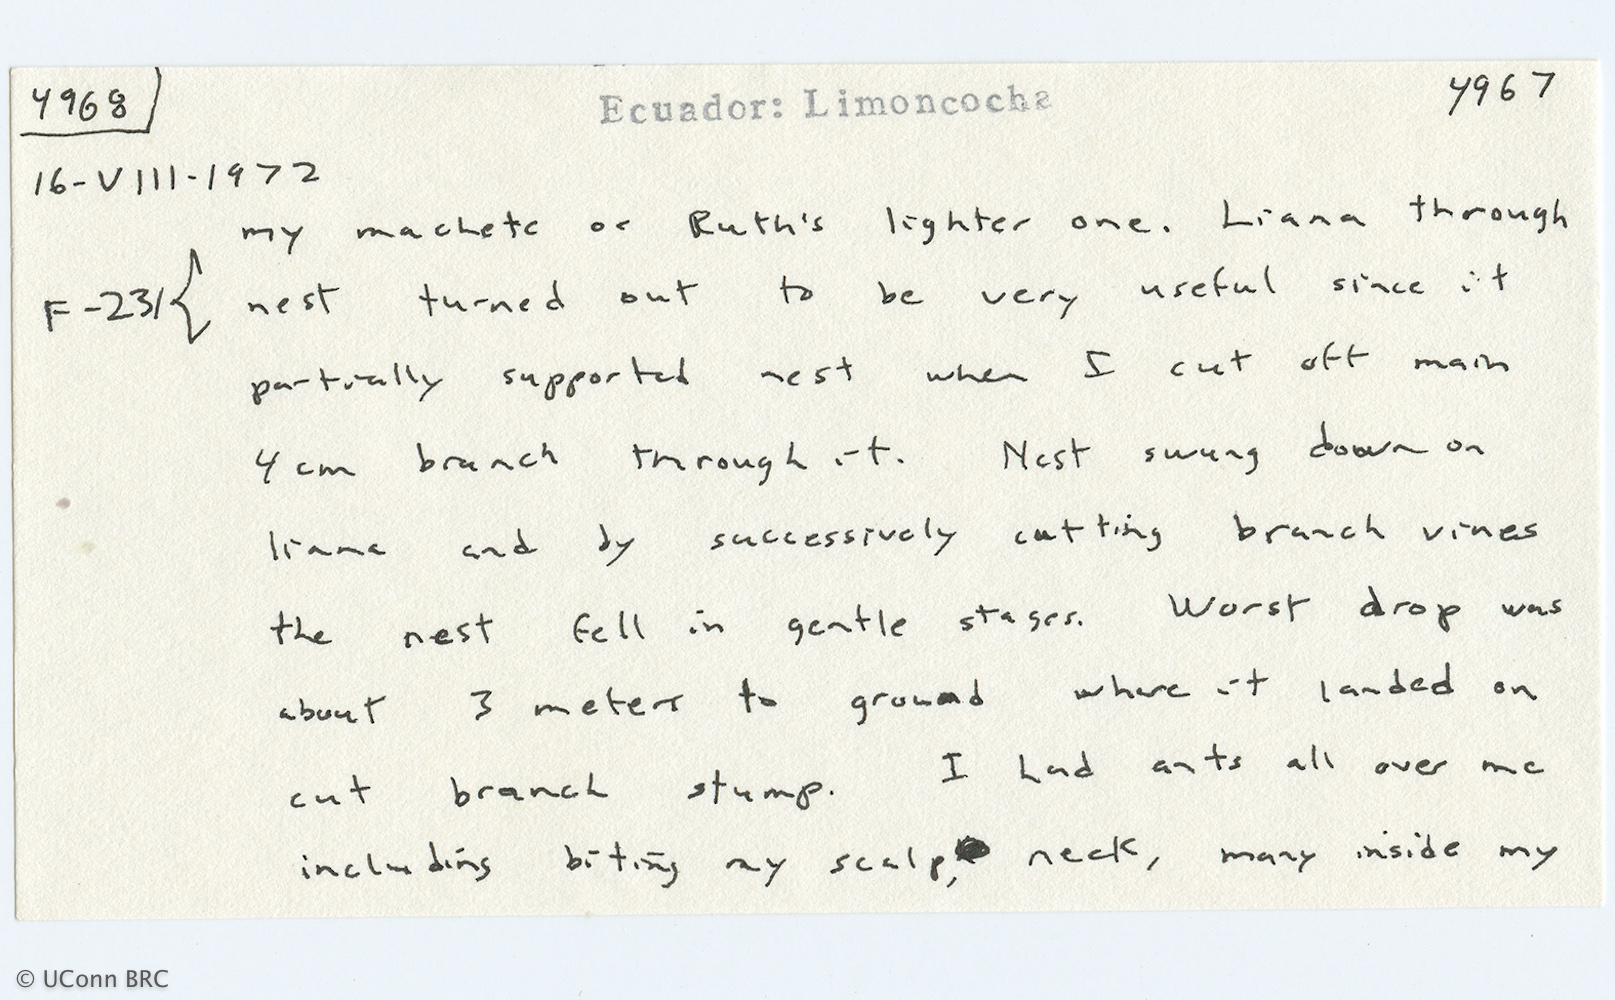 4968 Ecuador: Limoncocha 4967
16-VIII-1972
my machete or Ruth's lighter one. Liana through
F-231 { nest turned out to be very useful since it
partially supported nest when I cut off main
4 cm branch through it. Nest swung down on
liana and by successively cutting branch vines
the nest fell in gentle stages. Worst drop was
about 3 meters to ground where it landed on
cut branch stump. I had ants all over me
including biting my scalp, neck, many inside my
© UConn BRC